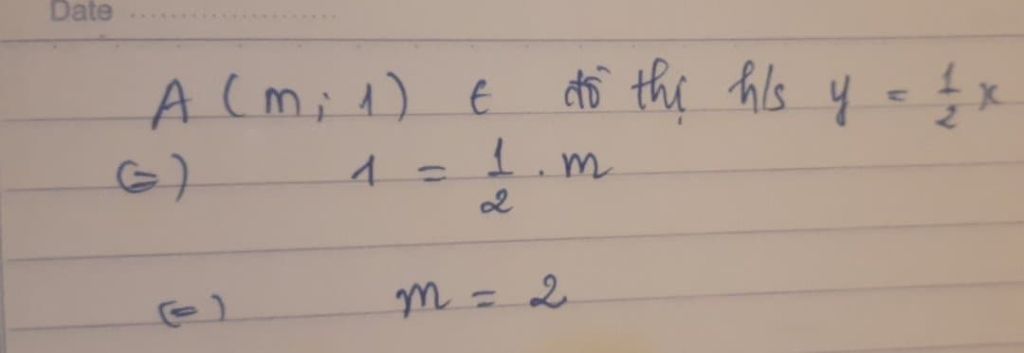 Date ....................
A (m; 1) ∈ đồ thị h/s y = 1/2 x
(=) 1 = 1/2 . m
(=) m = 2